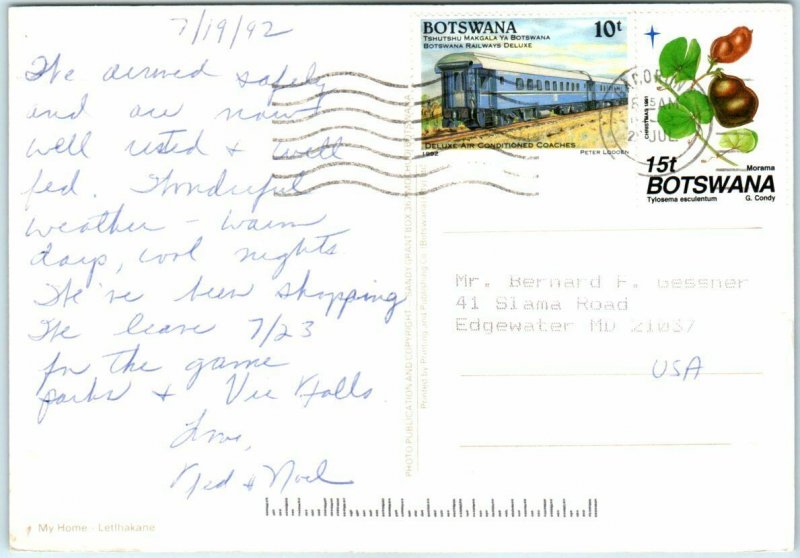 7/19/92
We arrived safely
and are now
well rested + well
fed. Wonderful
weather - warm
days, cool nights.
We've been shopping
We leave 7/23
for the game
parks + Vic Falls.
Love,
Ned + Noel
My Home - Letlhakane
PHOTO PUBLICATION AND COPYRIGHT - SANDY GRANT BOX
Printed by Printing and Publishing Co. (Botswana)
BOTSWANA 10t
TSHUTSHU MAKGALA YA BOTSWANA
BOTSWANA RAILWAYS DELUXE
DELUXE AIR CONDITIONED COACHES
1992 PETER LODOEN
CHRISTMAS 1991
15t
Morama
BOTSWANA
Tylosema esculentum G. Condy
Mr. Bernard F. Gessner
41 Slama Road
Edgewater MD 21037
USA